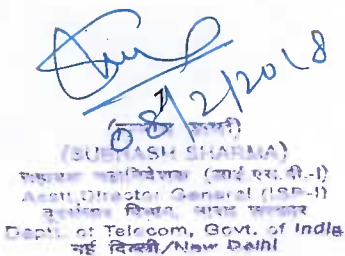 08/2/2018
(सुभाष शर्मा)
(SUBHASH SHARMA)
सहायक महानिदेशक (आई एस.पी.-I)
Asstt. Director General (ISP-I)
दूरसंचार विभाग, भारत सरकार
Deptt. of Telecom, Govt. of India
नई दिल्ली/New Delhi